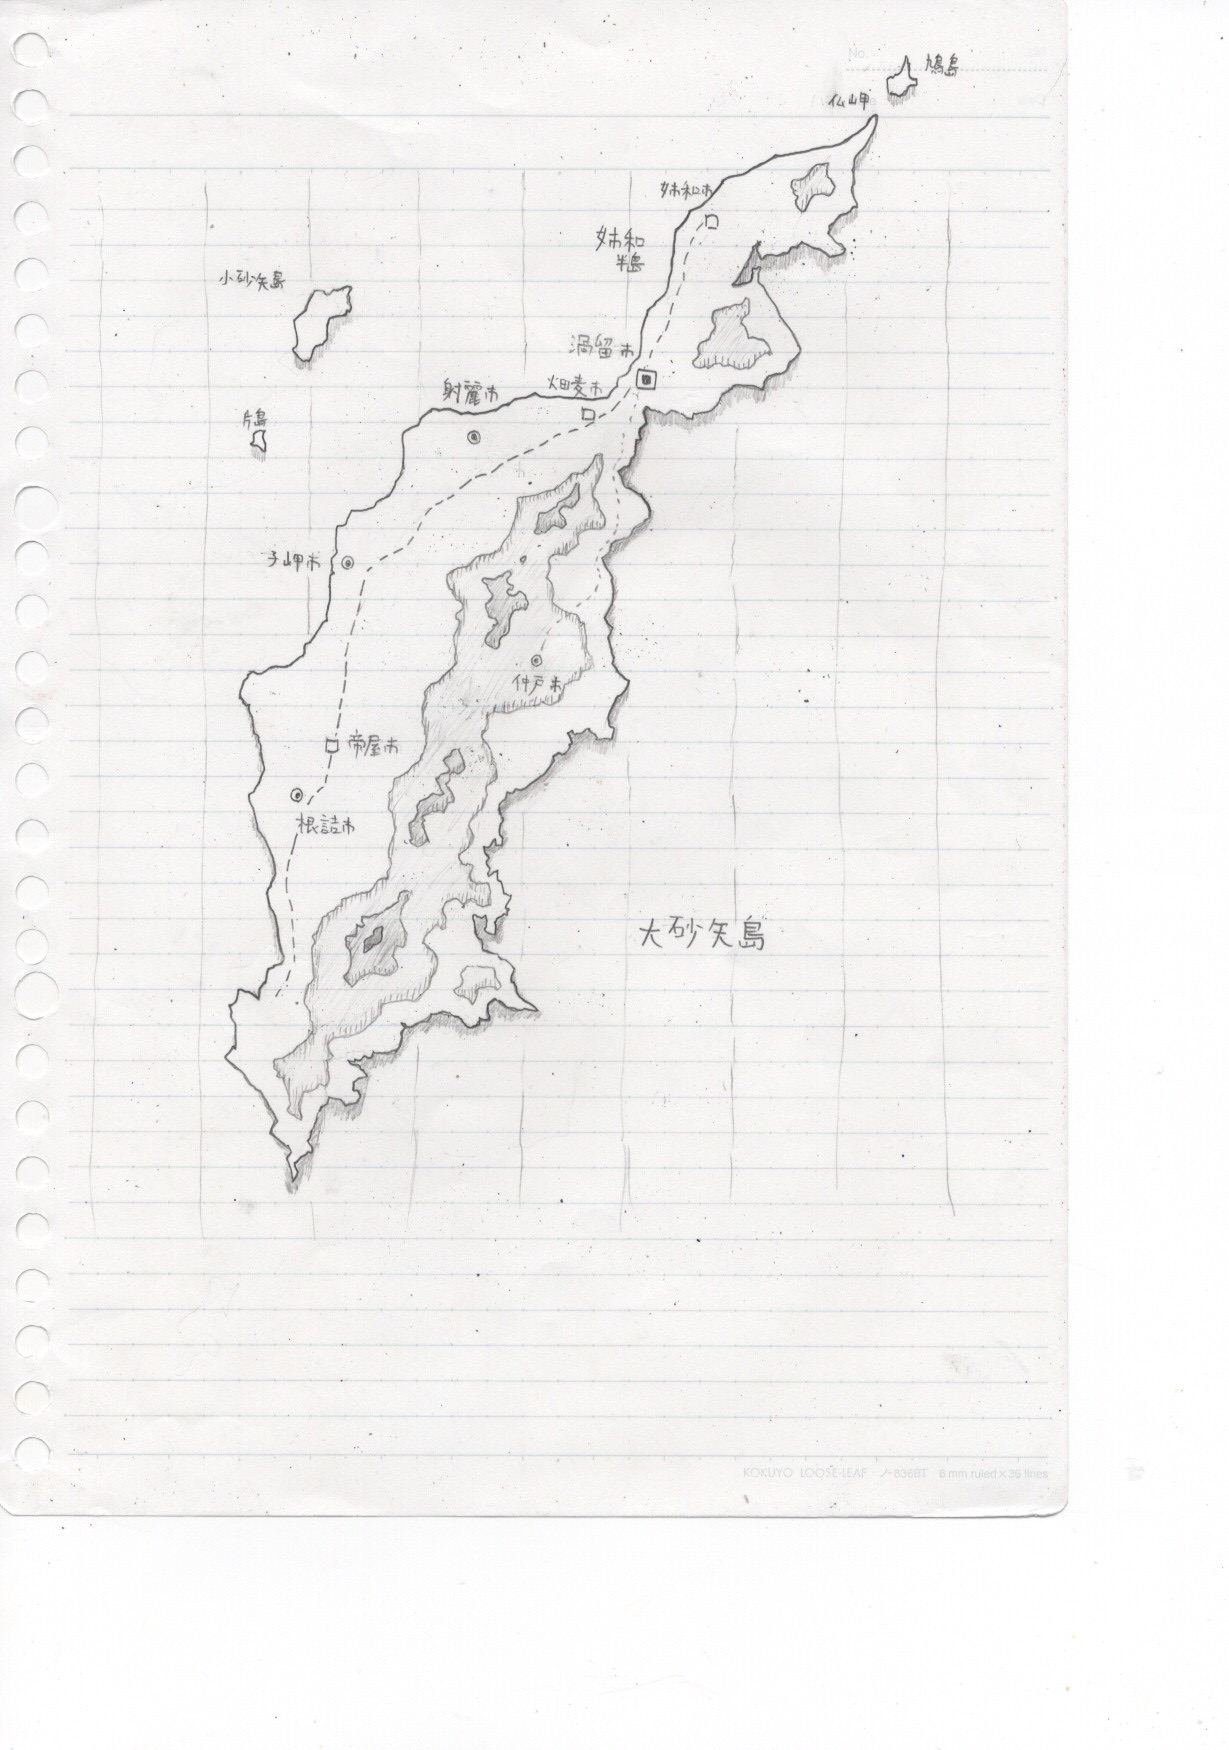 No.
鳩島
仏岬
姉和市
姉和
半島
小砂矢島
渦留市
畑麦市
射麗市
片島
子岬市
仲戸市
帝屋市
根詰市
大砂矢島
KOKUYO LOOSE-LEAF ノ-836BT 6 mm ruled×36 lines